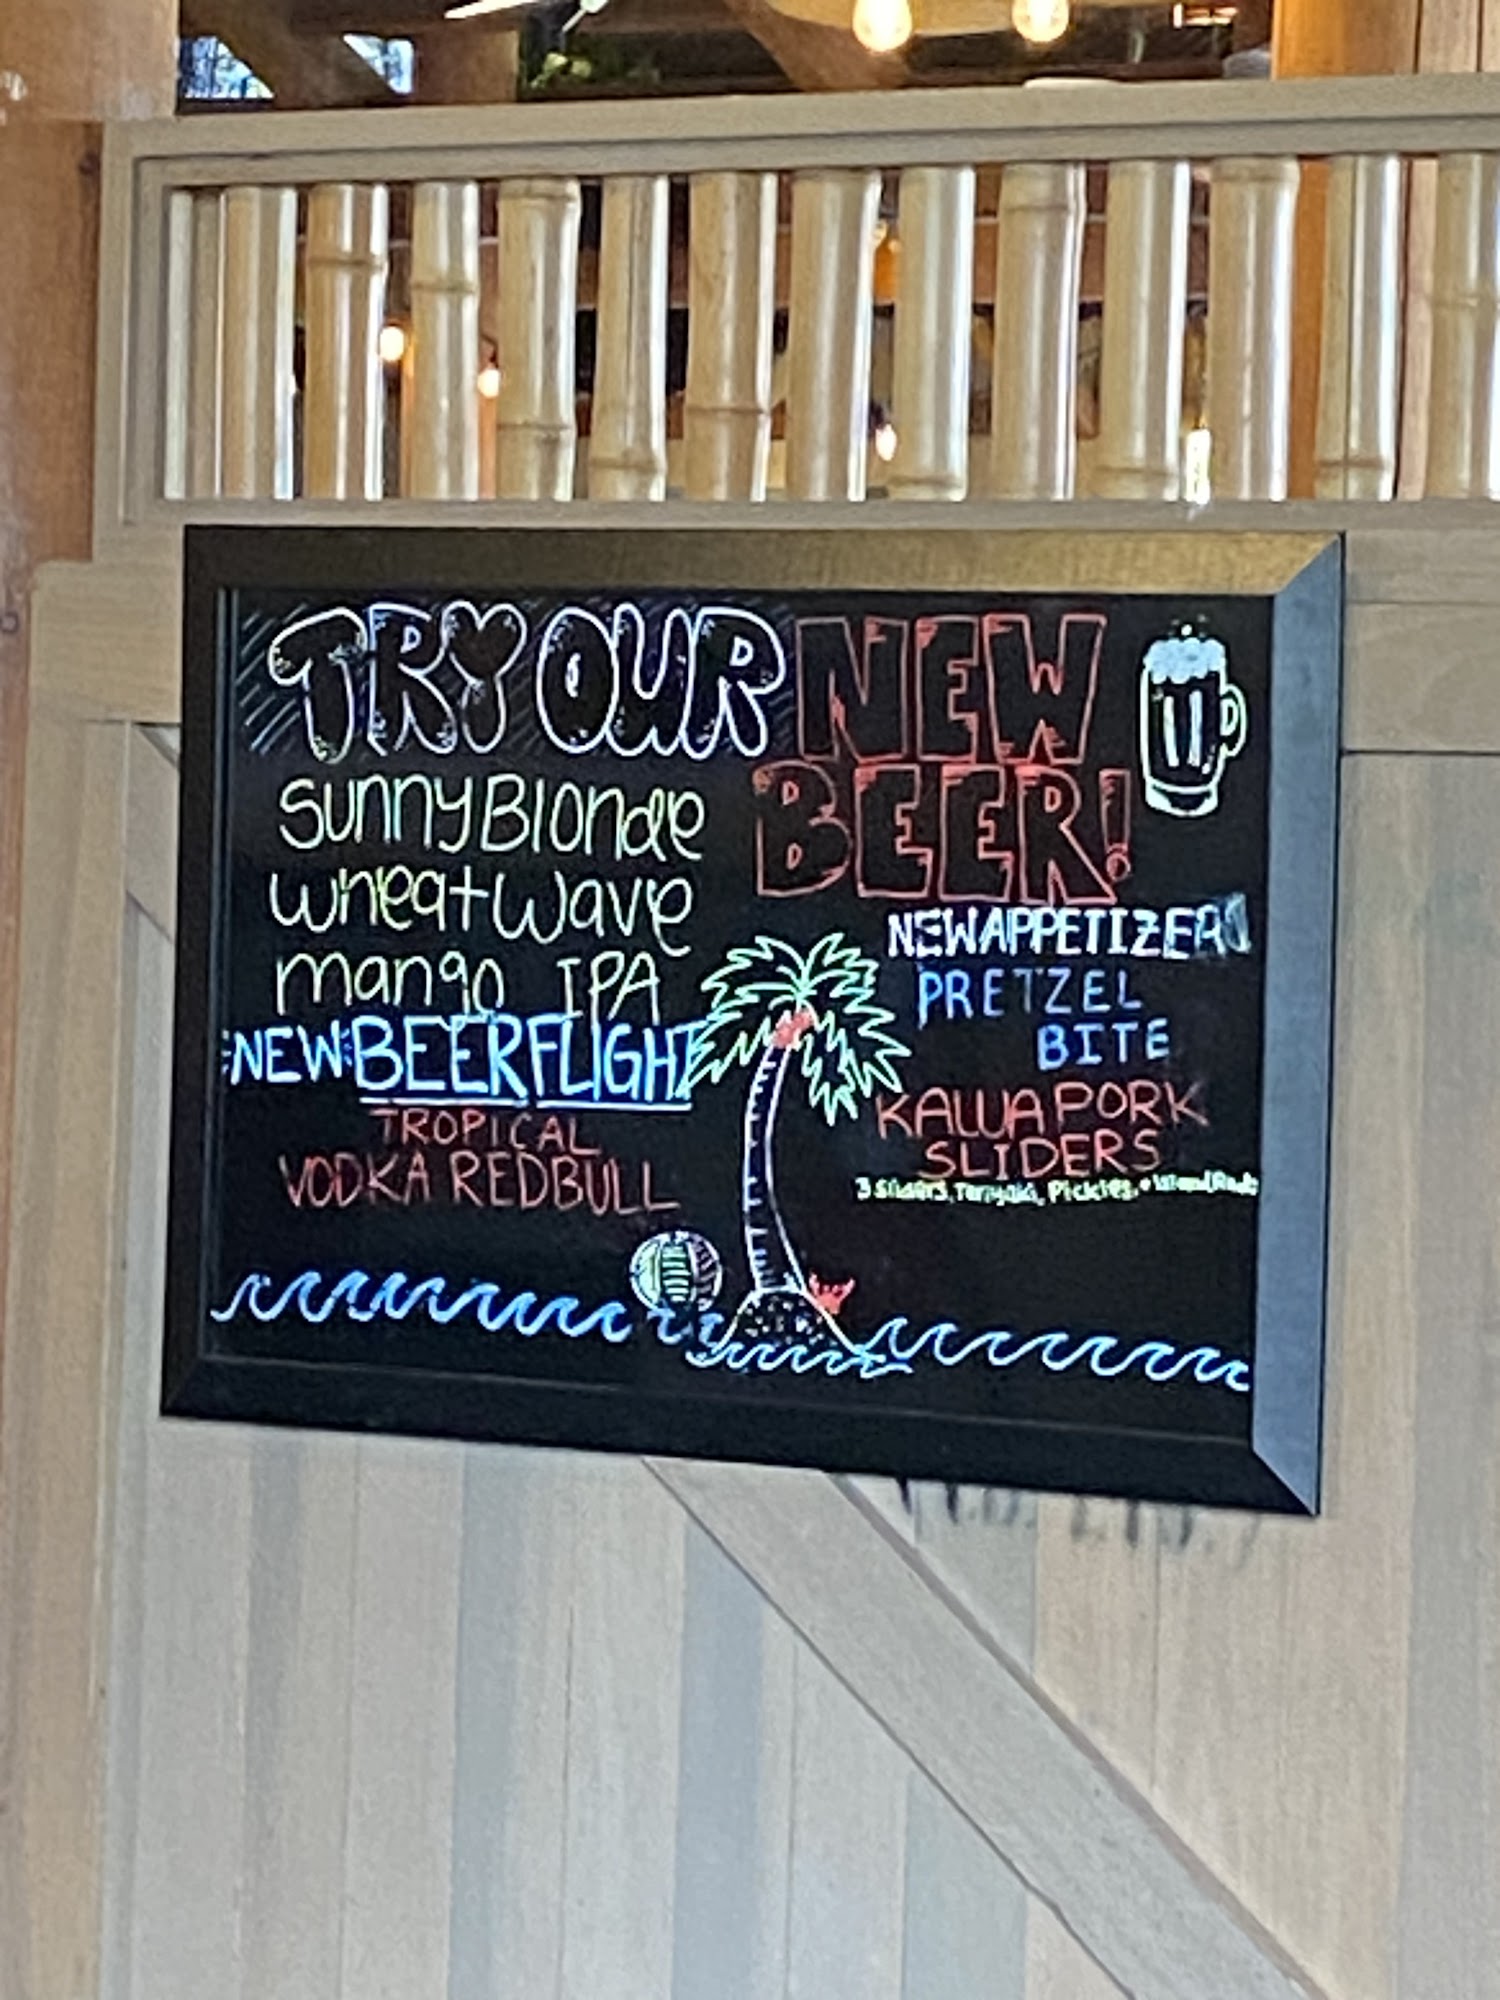 TRY OUR NEW
BEER!
Sunny Blonde
Wheat Wave
mango IPA
NEW BEER FLIGHT
TROPICAL
VODKA REDBULL
NEW APPETIZER
PRETZEL
BITE
KALUA PORK
SLIDERS
3 Sliders, Teriyaki, Pickles, + Island